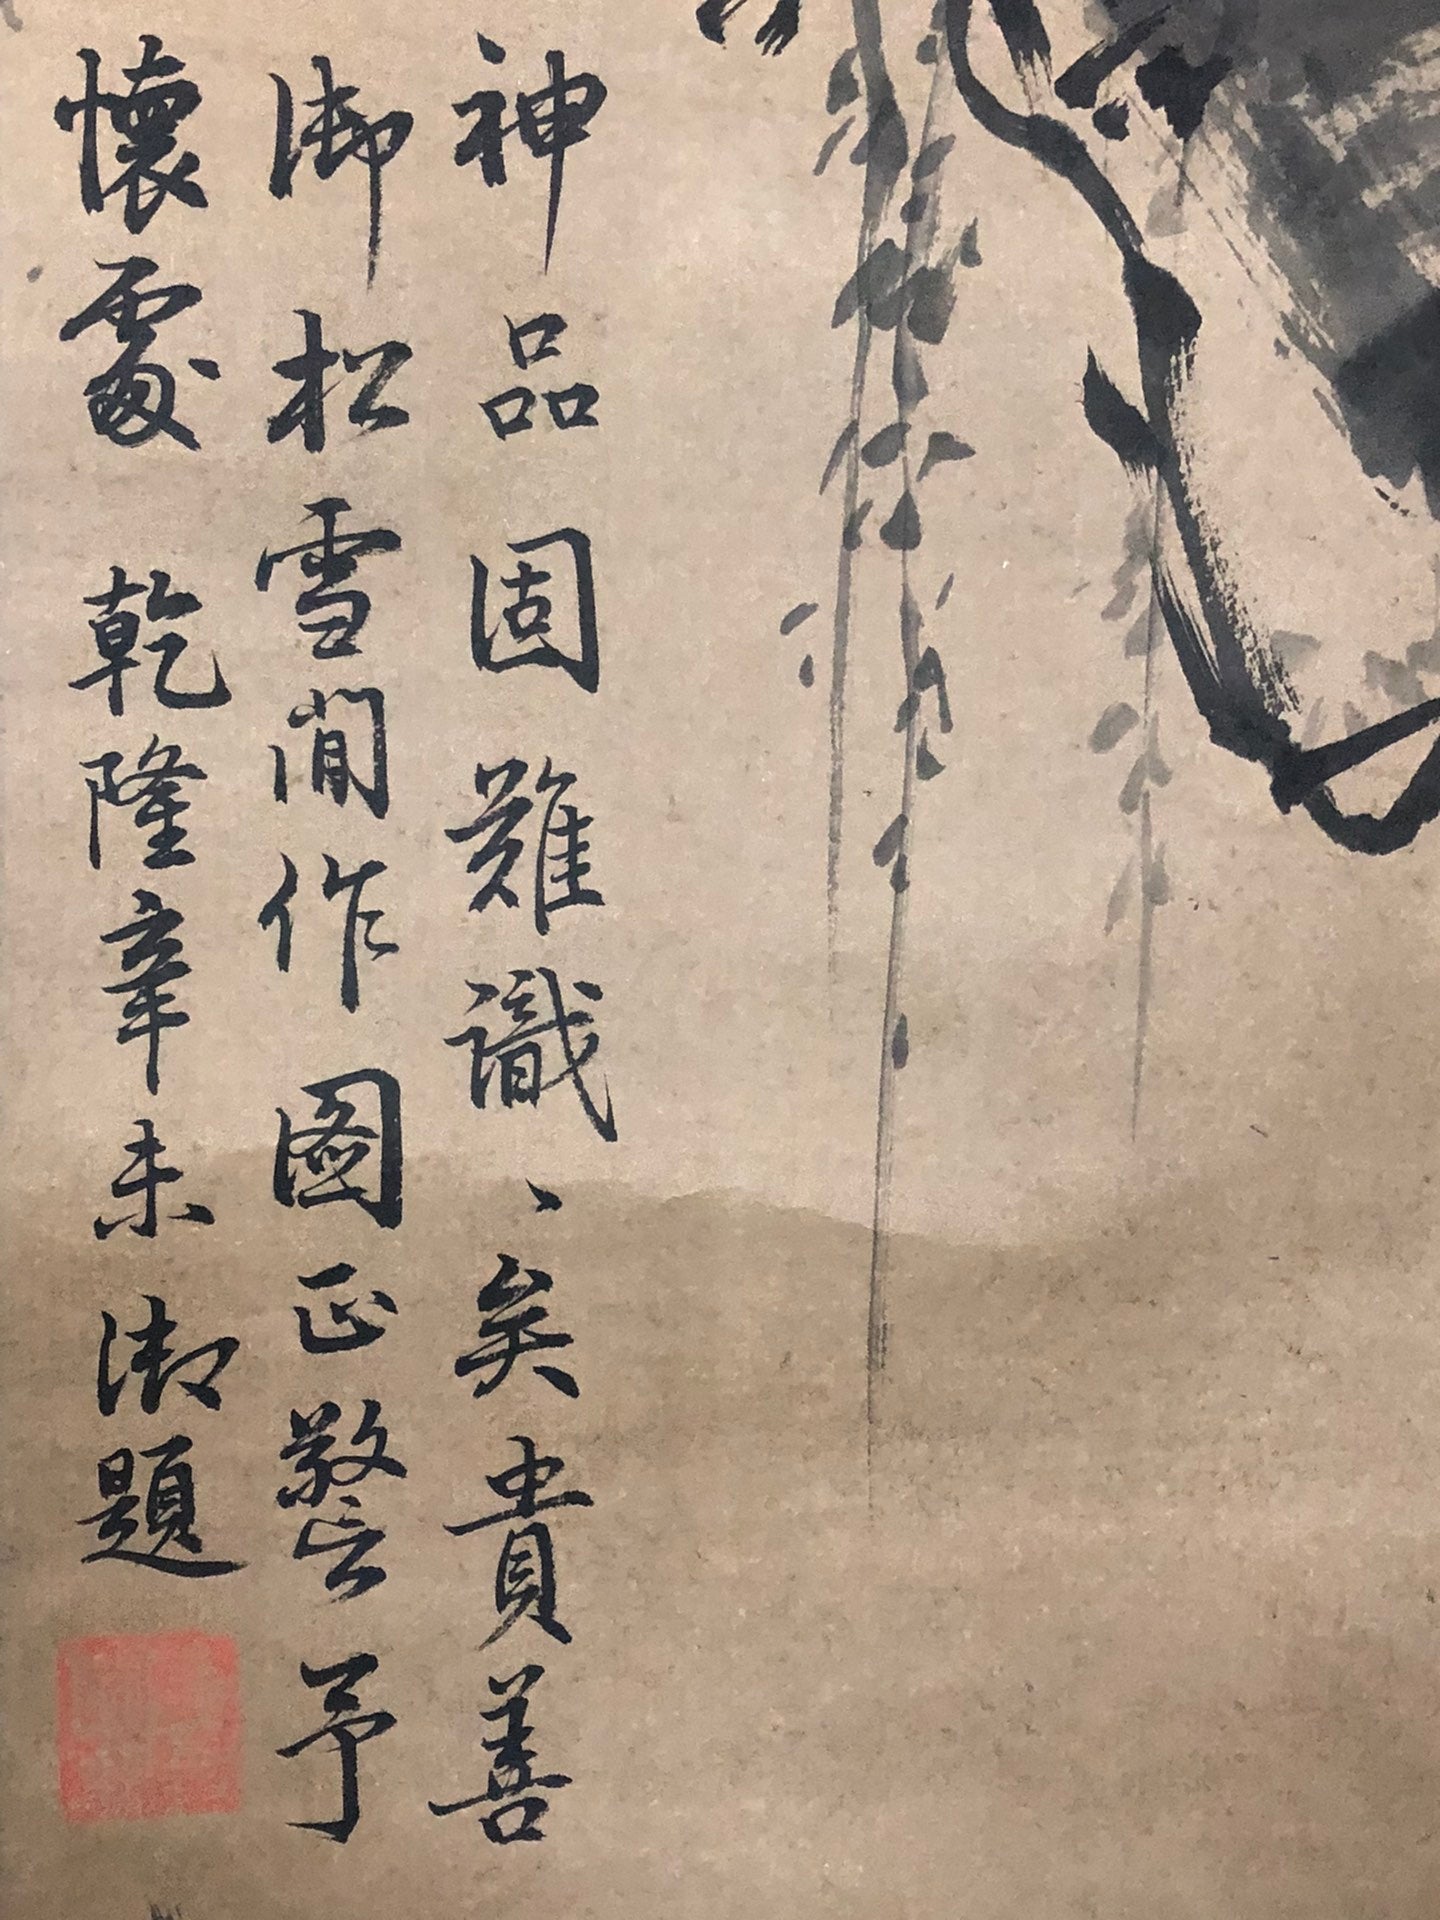 神品固難識〻矣貴善
御松雪閒作圖正警予
懷處 乾隆辛未御題